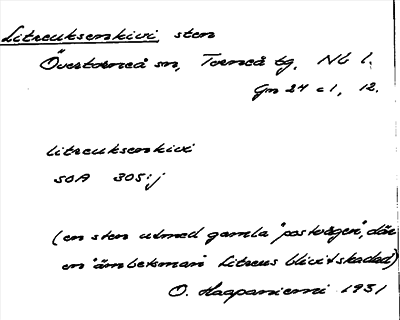 Litreuksenkivi, sten
Övertorneå sn, Torneå tg, Nb l.
Gm 24 c 1, 12.
litreuksenkivi
SOA 305:j
(en sten utmed gamla "postvägen", där
en "ämbetsman" Litreus blivit skadad)
O. Haapaniemi 1931